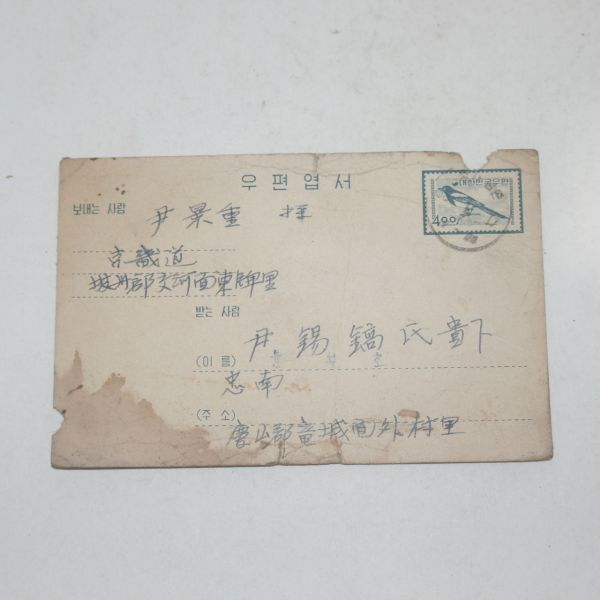 우편엽서
대한민국우표
400
보내는 사람 尹景重 拜
京畿道
坡州郡交河面東牌里
받는 사람
(이 름) 尹錫鎬氏貴下
忠南
(주 소) 面外村里